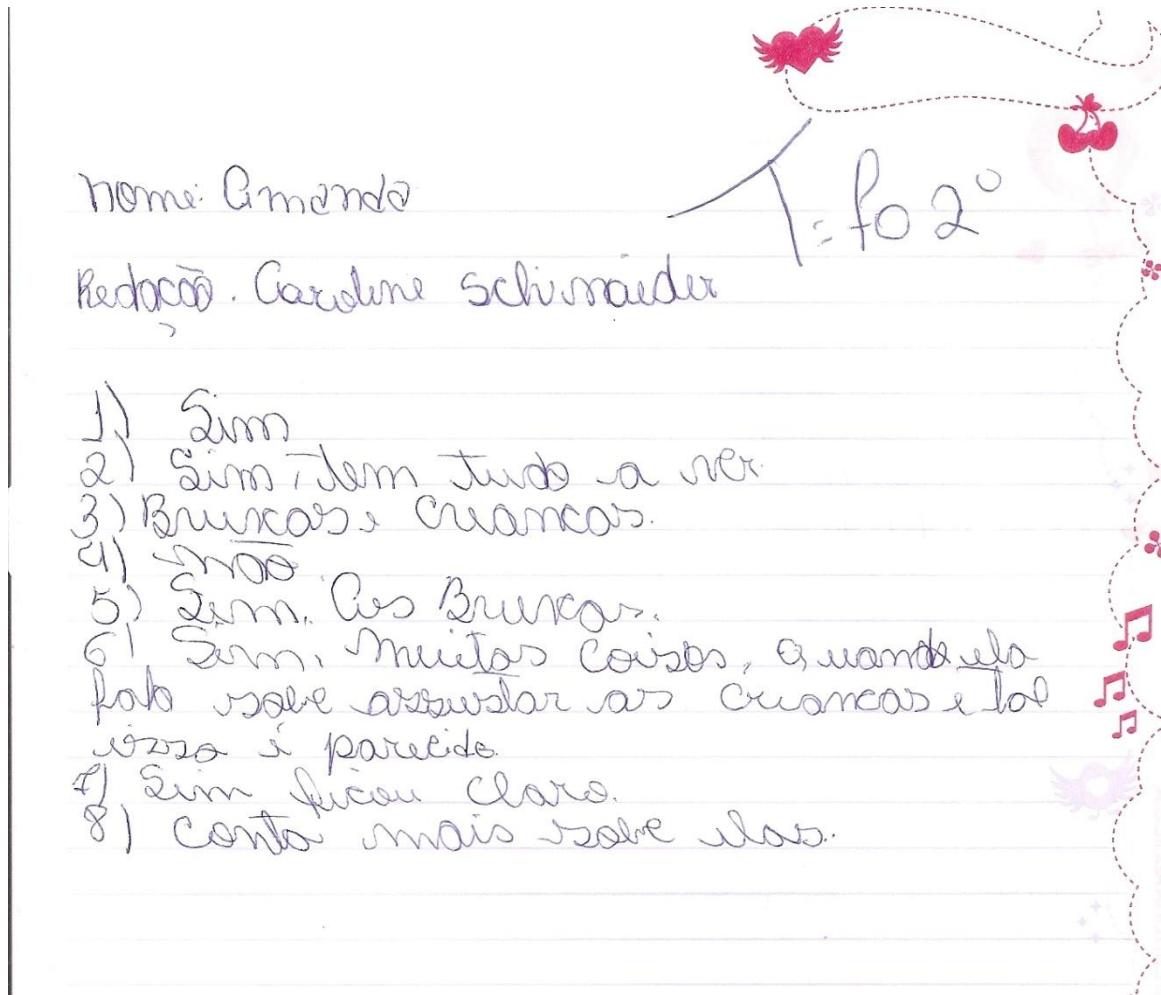 Nome: Amanda
T= fo 2º
Redação. Caroline Schinaider
1) Sim
2) Sim, tem tudo a ver.
3) Bruxas e Criancas.
4) não
5) Sim. As Bruxas.
6) Sim, Muitas Coisas, Quando ela
fala sobe assustar as criancas e tal
isso é parecido.
7) Sim ficou Claro.
8) Conta mais sobe elas.